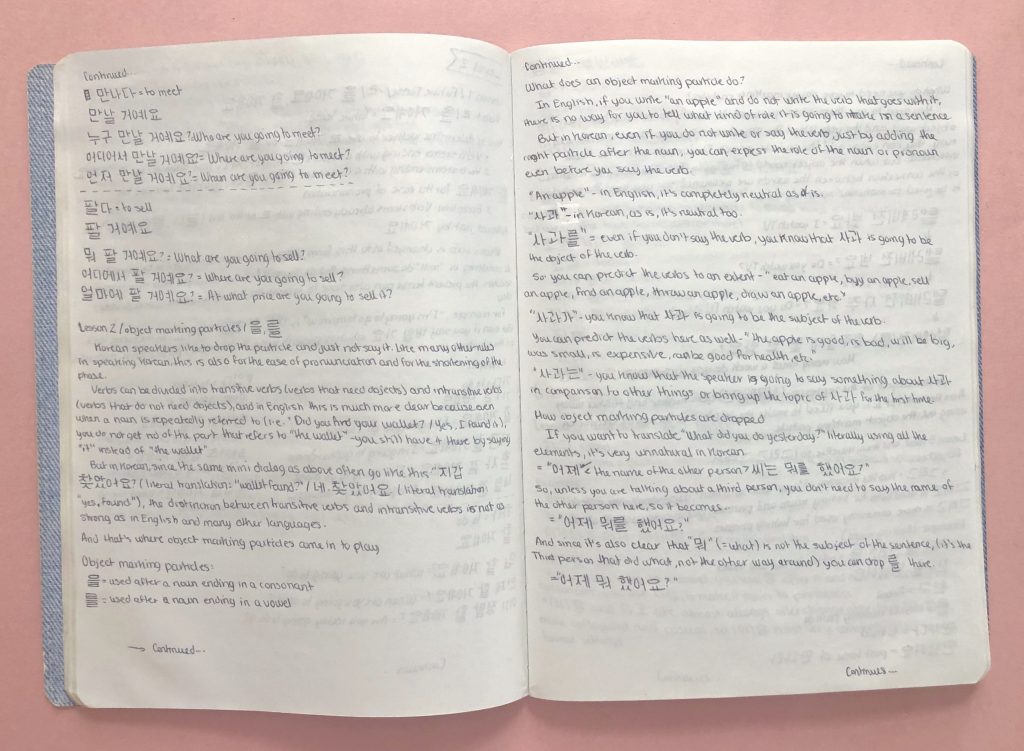 Continued...
만나다 = to meet
만날 거예요
누구 만날 거예요? Who are you going to meet?
어디어서 만날 거예요? = Where are you going to meet?
먼저 만날 거예요? = When are you going to meet?
팔다 = to sell
팔 거예요
뭐 팔 거예요? = What are you going to sell?
어디에서 팔 거예요? = Where are you going to sell?
얼마에 팔 거예요? = At what price are you going to sell it?
Lesson 2 / object marking particles / 을, 를
Korean speakers like to drop the particle and just not say it. Like many other rules
in speaking Korean, this is also for the ease of pronunciation and for the shortening of the
phase.
Verbs can be divided into transitive verbs (verbs that need objects) and intransitive verbs
(verbs that do not need objects), and in English this is much more clear because even
when a noun is repeatedly referred to (i.e. "Did you find your wallet? / Yes, I found it),
you do not get rid of the part that refers to "the wallet" - you still have it there by saying
"it" instead of "the wallet"
But in Korean, since the same mini dialog as above often go like this "지갑
찾았어요? (literal translation: "wallet found?" / 네. 찾았어요 (literal translation:
"yes, found"), the distinction between transitive verbs and intransitive verbs is not as
strong as in English and many other languages.
And that's where object marking particles come in to play
Object marking particles:
을 = used after a noun ending in a consonant
를 = used after a noun ending in a vowel
→ Continued...
Continued...
What does an object marking particle do?
In English, if you write "an apple" and do not write the verb that goes with it,
there is no way for you to tell what kind of role it is going to make in a sentence
But in Korean, even if you do not write or say the verb, just by adding the
right particle after the noun, you can express the role of the noun or pronoun
even before you say the verb.
"An apple" - in English, it's completely neutral as is.
"사과" - in Korean, as is, it's neutral too.
"사과를" = even if you don't say the verb, you know that 사과 is going to be
the object of the verb.
So you can predict the verbs to an extent - "eat an apple, buy an apple, sell
an apple, find an apple, throw an apple, draw an apple, etc."
"사과가" - you know that 사과 is going to be the subject of the verb.
You can predict the verbs here as well - "the apple is good, is bad, will be big,
was small, is expensive, can be good for health, etc."
"사과는" - you know that the speaker is going to say something about 사과
in comparison to other things or bring up the topic of 사과 for the first time.
How object marking particles are dropped
If you want to translate "What did you do yesterday?" literally using all the
elements, it's very unnatural in Korean
= "어제 (the name of the other person) 씨는 뭐를 했어요?"
So, unless you are talking about a third person, you don't need to say the name of
the other person here, so it becomes..
= "어제 뭐를 했어요?"
And since it's also clear that "뭐" (= what) is not the subject of the sentence, (it's the
Third person that did what, not the other way around) you can drop 를 here.
= "어제 뭐 했어요?"
Continues...